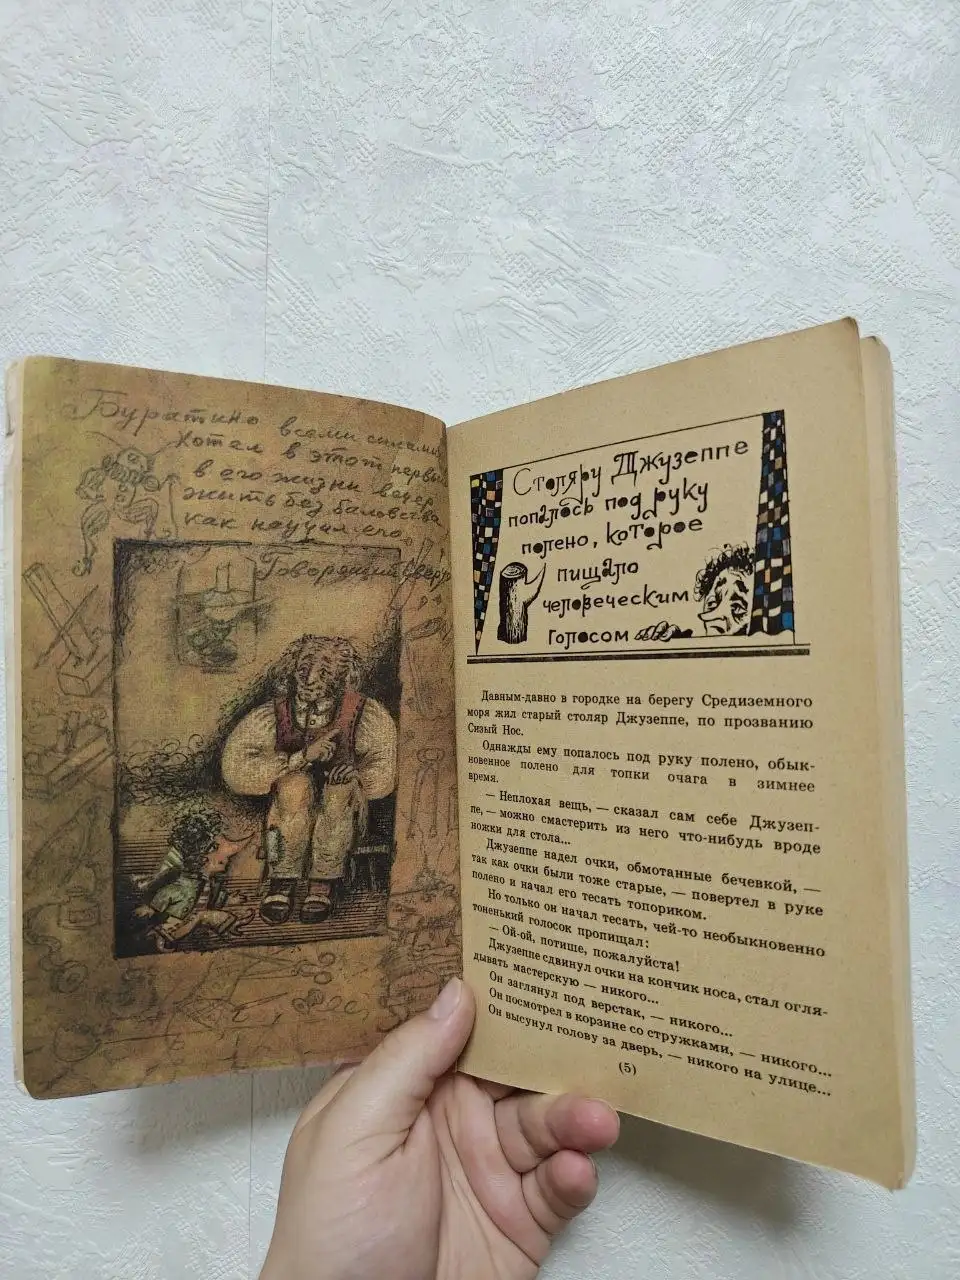 Буратино всеми силами
хотел в этот первый
в его жизни вечер
жить без баловства
как научил его
Говорящий Сверч
Столяру Джузеппе
попалось под руку
полено, которое
пищало
человеческим
голосом
Давным-давно в городке на берегу Средиземного
моря жил старый столяр Джузеппе, по прозванию
Сизый Нос.
Однажды ему попалось под руку полено, обык-
новенное полено для топки очага в зимнее
время.
— Неплохая вещь, — сказал сам себе Джузеп-
пе, — можно смастерить из него что-нибудь вроде
ножки для стола...
Джузеппе надел очки, обмотанные бечевкой, —
так как очки были тоже старые, — повертел в руке
полено и начал его тесать топориком.
Но только он начал тесать, чей-то необыкновенно
тоненький голосок пропищал:
— Ой-ой, потише, пожалуйста!
Джузеппе сдвинул очки на кончик носа, стал огля-
дывать мастерскую — никого...
Он заглянул под верстак, — никого...
Он посмотрел в корзине со стружками, — никого...
Он высунул голову за дверь, — никого на улице...
(5)